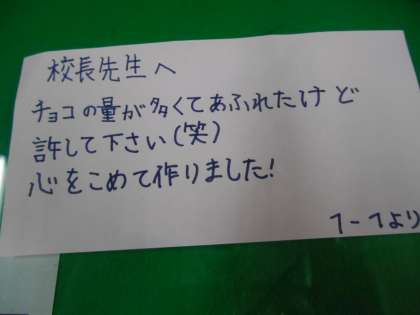 校長先生へ
チョコの量が多くてあふれたけど
許して下さい(笑)
心をこめて作りました!
1-1より